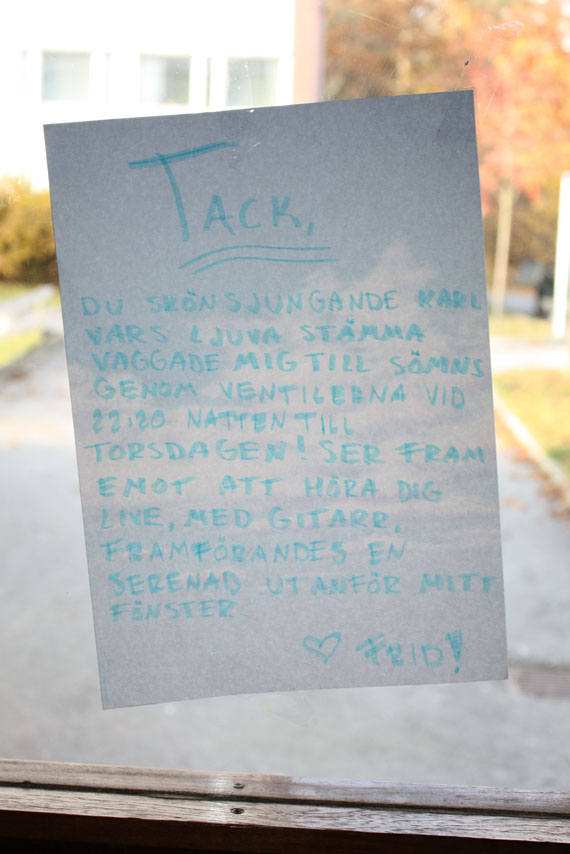 TACK,
DU SKÖNSJUNGANDE KARL
VARS LJUVA STÄMMA
VAGGADE MIG TILL SÖMNS
GENOM VENTILERNA VID
22:20 NATTEN TILL
TORSDAGEN! SER FRAM
EMOT ATT HÖRA DIG
LIVE, MED GITARR,
FRAMFÖRANDES EN
SERENAD UTANFÖR MITT
FÖNSTER
♡ FRID!